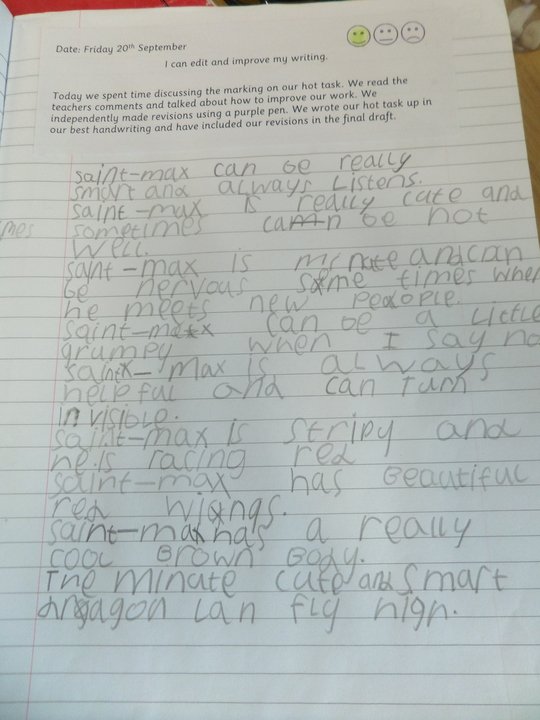 Date: Friday 20th September
I can edit and improve my writing.
Today we spent time discussing the marking on our hot task. We read the
teachers comments and talked about how to improve our work. We
independently made revisions using a purple pen. We wrote our hot task up in
our best handwriting and have included our revisions in the final draft.
saint-max can be really
smart and always Listens.
saint-max is really cute and
mes sometimes can be not
well.
saint-max is minate and can
be nervous some times when
he meets new people.
saint-max can be a Little
grumpy when I say no
saint-max is always
helpful and can turn
invisible.
saint-max is stripy and
he is racing red
saint-max has Beautiful
red wings.
saint-max has a really
cool Brown Body.
The minute cute and smart
dragon can fly high.